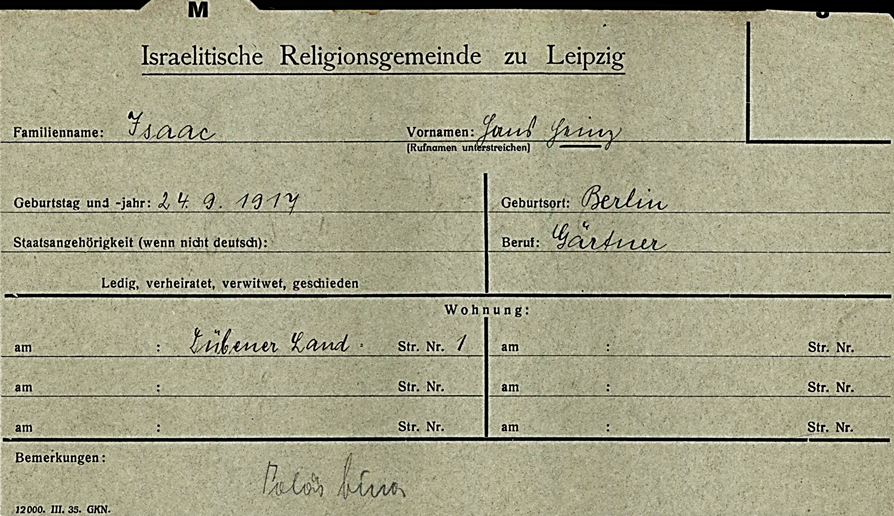 M
Israelitische Religionsgemeinde zu Leipzig
Familienname: Isaac Vornamen: Hans Heinz
(Rufnamen unterstreichen)
Geburtstag und -jahr: 24. 9. 1917 Geburtsort: Berlin
Staatsangehörigkeit (wenn nicht deutsch): Beruf: Gärtner
Ledig, verheiratet, verwitwet, geschieden
Wohnung:
am : Dübener Land Str. Nr. 1 am : Str. Nr.
am : Str. Nr. am : Str. Nr.
am : Str. Nr. am : Str. Nr.
Bemerkungen:
12000. III. 35. GKN.